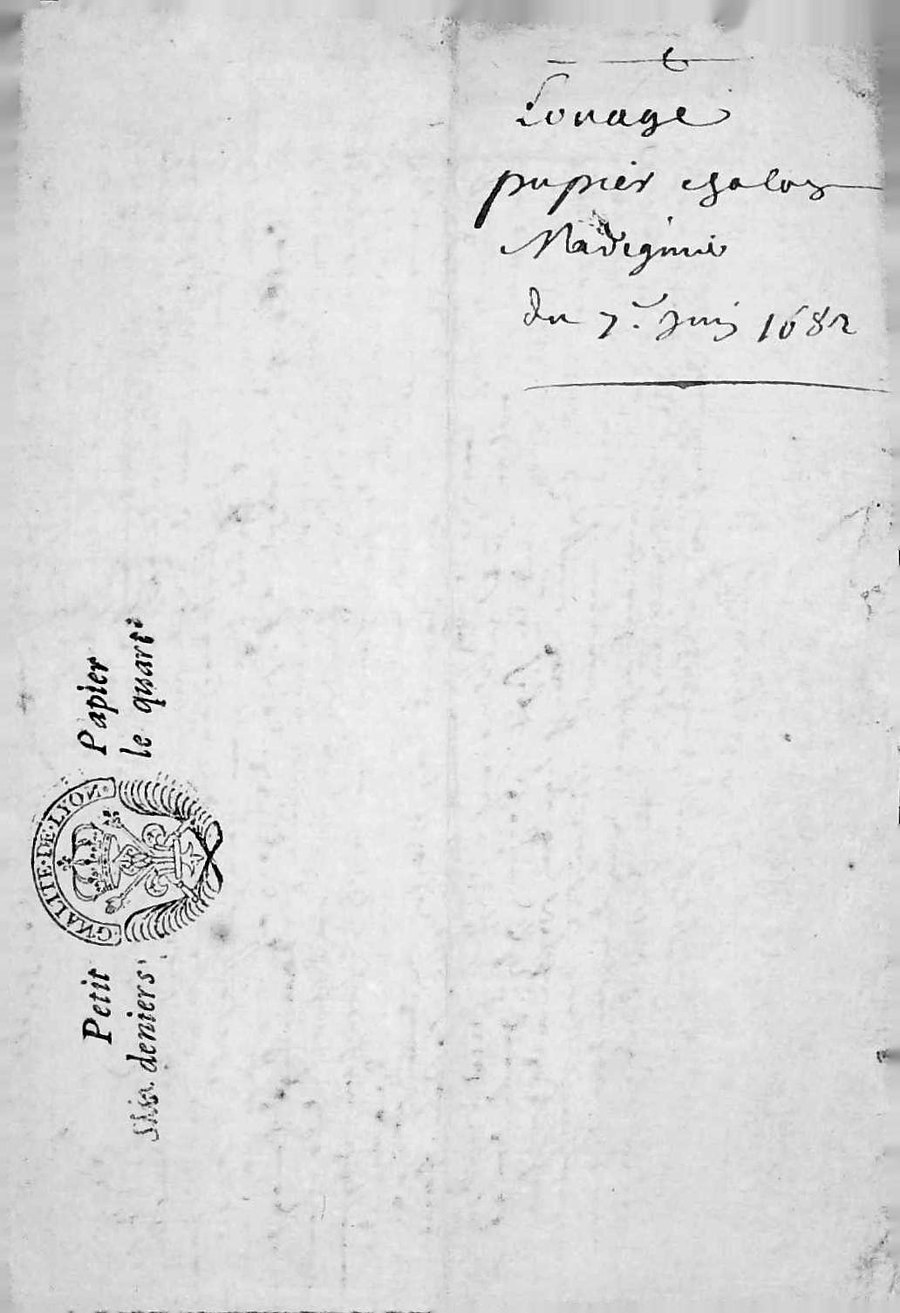 Louage
pupier chaloz
Madignié
du 7.e Juin 1682
Petit Papier
Six deniers le quart.
G͞NALITE·DE·LYON·